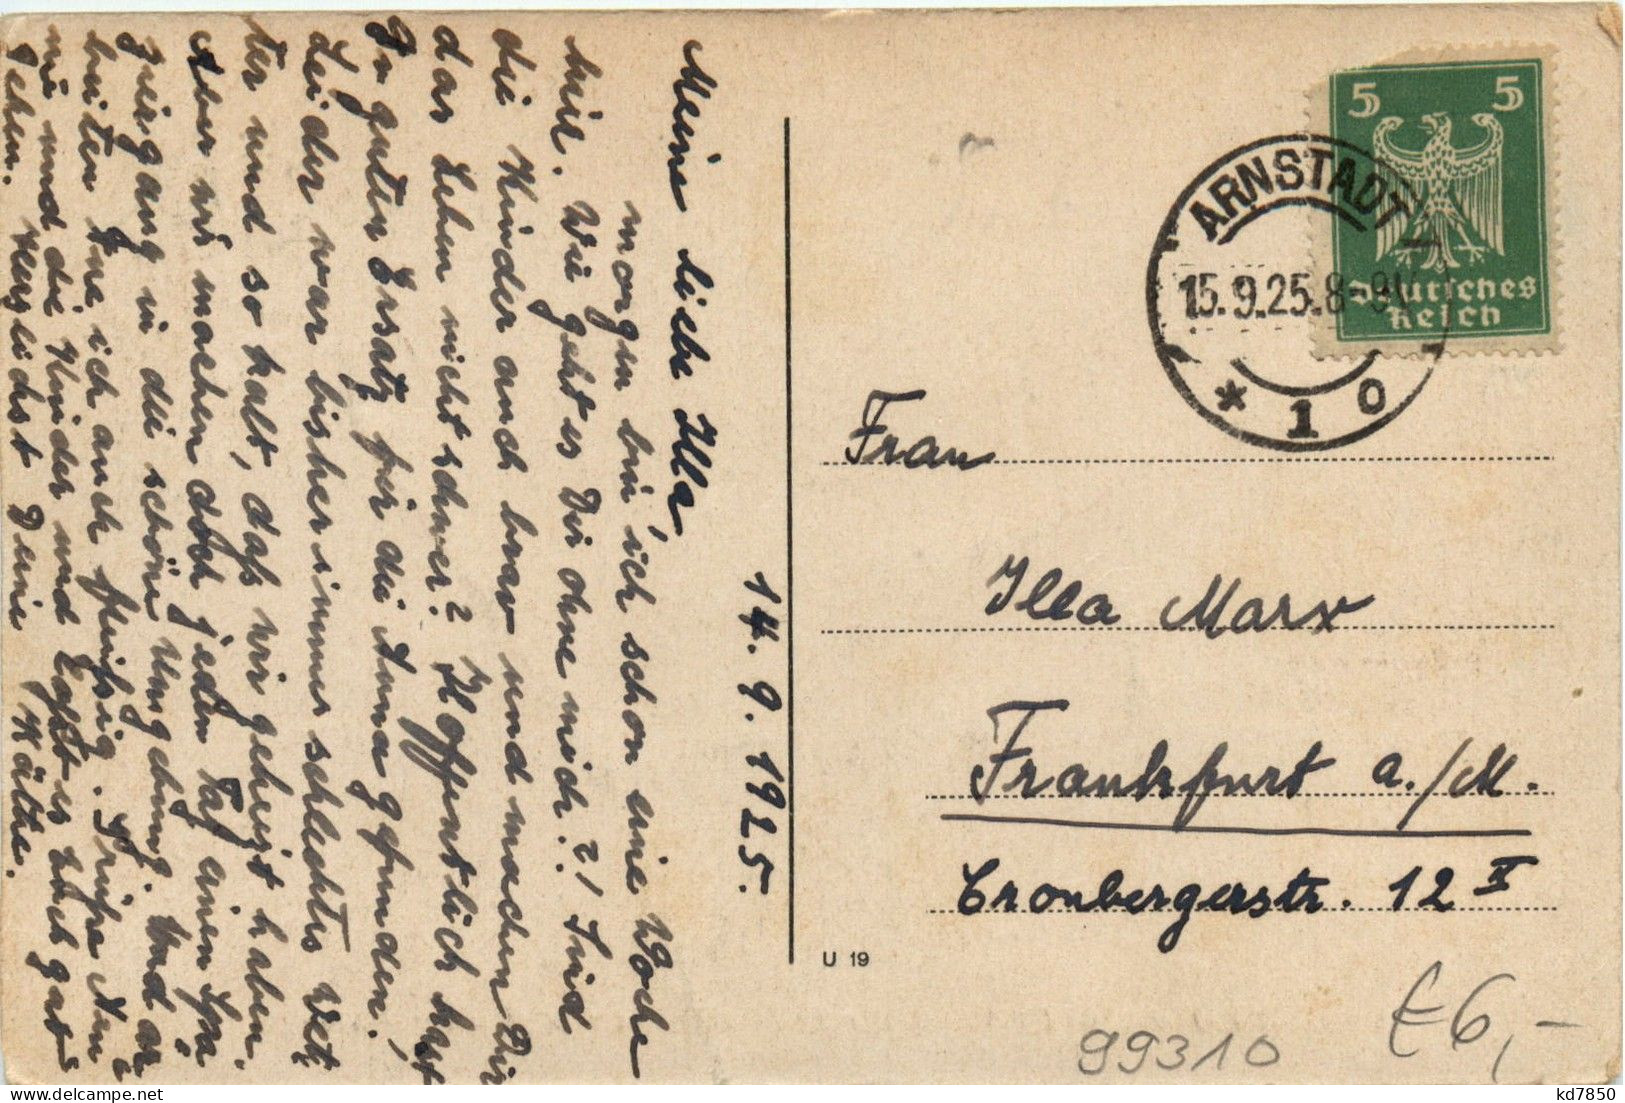 14. 9. 1925.
Meine liebe Illa,
morgen bin ich schon eine Woche
hier. Wie geht es Dir ohne mich? Sind
die Kinder auch brav und machen Dir
das Leben nicht schwer? Hoffentlich hast
Du guten Ersatz für die Anna gefunden!
Leider war bisher immer schlechtes Wet-
ter und so kalt, daß wir geheizt haben.
Aber wir machen doch jeden Tag einen Spa-
ziergang in die schöne Umgebung. Und ar-
beiten tue ich auch fleißig. Grüße
und die Kinder und laßt es Euch gut
gehen. Herzlichst Deine Käthe.
5 5
Deutsches
Reich
ARNSTADT
15.9.25.8-9V
* 1 o
Frau
Illa Marx
Frankfurt a./M.
Cronbergerstr. 12 II
U 19
99310
€6,-
kd7850